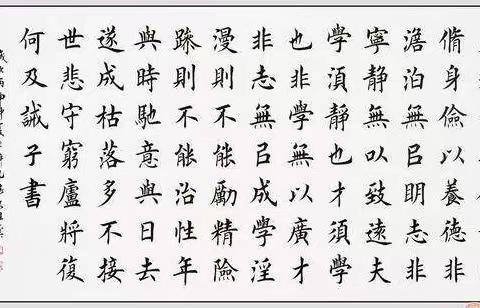 脩身儉以養德非
澹泊無㠯眀志非
寧静無㕥致遠夫
學湏静也才須學
也非學無以廣才
非志無㠯成學淫
漫則不能勵精險
踈則不能治性年
與時馳意與日去
遂成枯落多不接
世悲守窮廬將復
何及誡子書